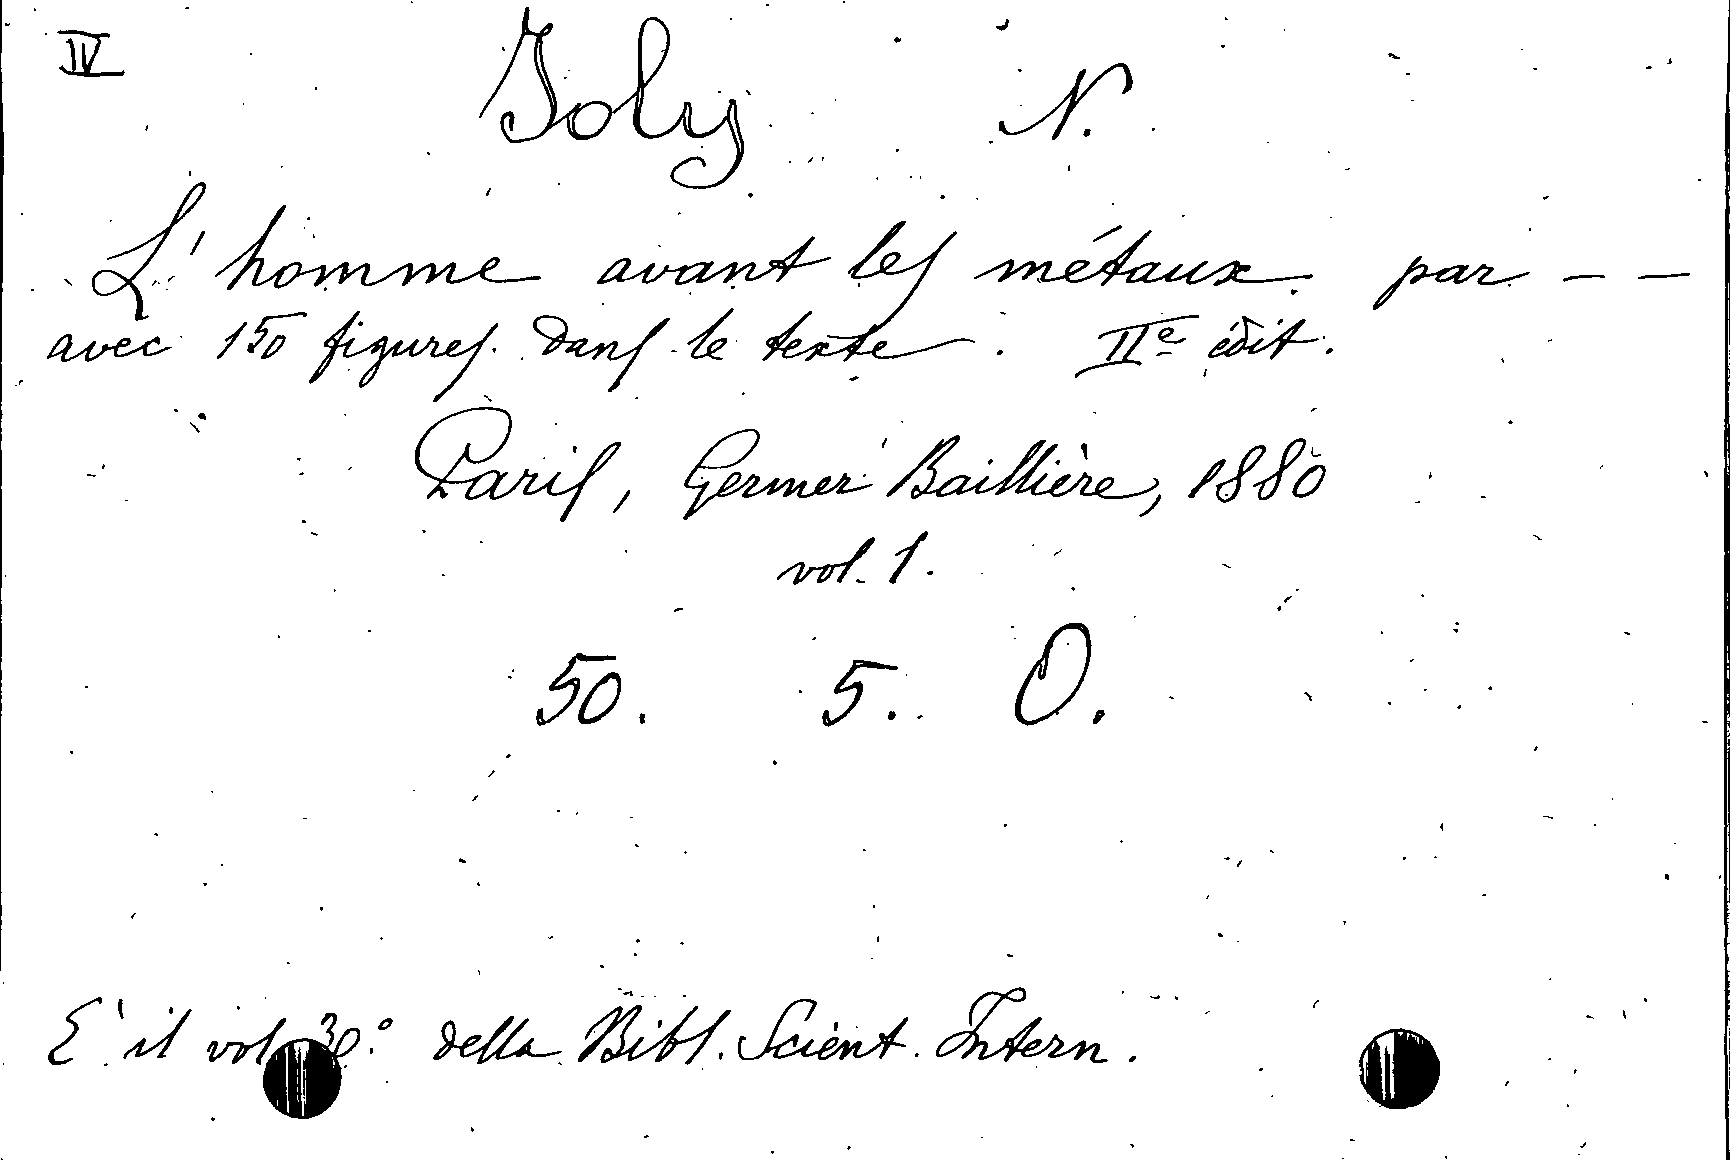 IV
Joly N.
L'homme avant les métaux par - -
avec 150 figures dans le texte. IIe édit.
Paris, Germer Baillière, 1880
vol. 1.
50. 5. O.
E' il vol. 30.° della Bibl. Scient. Intern.